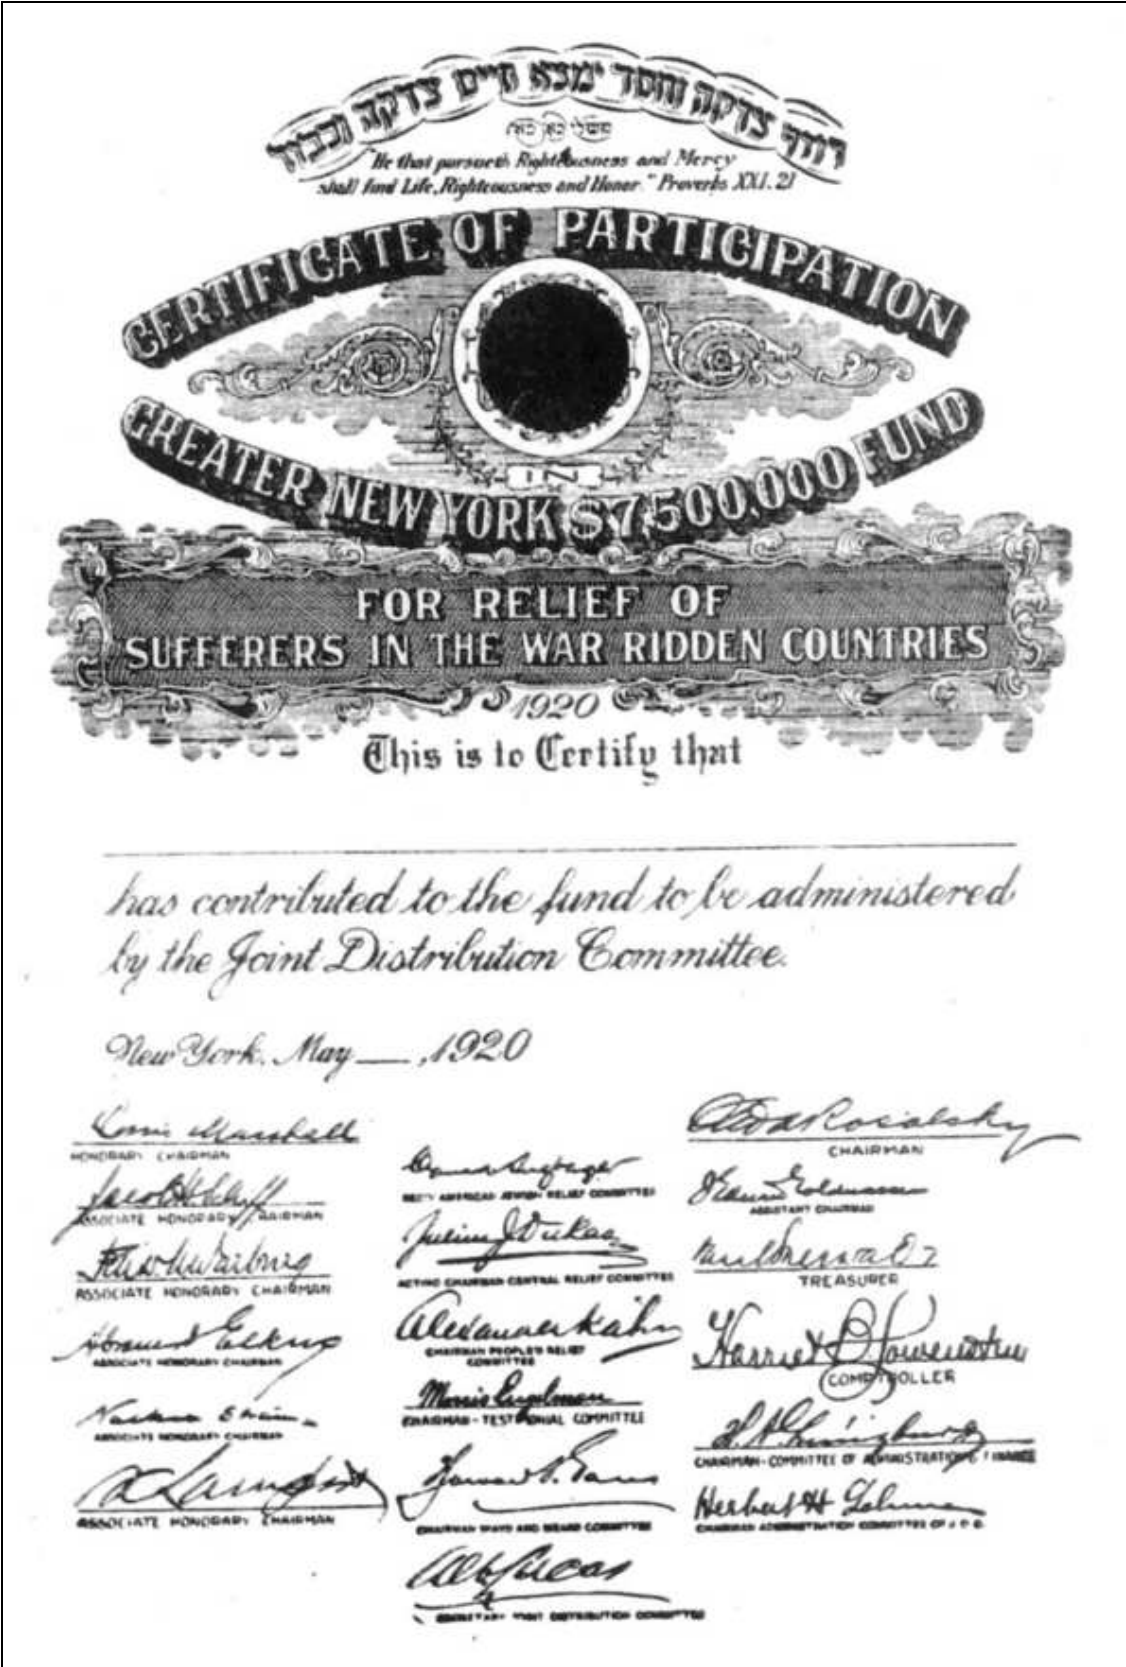 רודף צדקה וחסד ימצא חיים צדקה וכבוד
משלי כא כא
"He that pursueth Righteousness and Mercy
shall find Life, Righteousness and Honor." Proverbs XXI. 21
CERTIFICATE OF PARTICIPATION
IN
GREATER NEW YORK $7,500,000 FUND
FOR RELIEF OF
SUFFERERS IN THE WAR RIDDEN COUNTRIES
1920
This is to Certify that
has contributed to the fund to be administered
by the Joint Distribution Committee.
New York, May __, 1920
Louis Marshall
HONORARY CHAIRMAN
Jacob H. Schiff
ASSOCIATE HONORARY CHAIRMAN
Felix M. Warburg
ASSOCIATE HONORARY CHAIRMAN
ASSOCIATE HONORARY CHAIRMAN
Nathan Straus
ASSOCIATE HONORARY CHAIRMAN
ASSOCIATE HONORARY CHAIRMAN
SECY AMERICAN JEWISH RELIEF COMMITTEE
Julius J. Dukas
ACTING CHAIRMAN CENTRAL RELIEF COMMITTEE
Alexander Kahn
CHAIRMAN PEOPLE'S RELIEF
COMMITTEE
Morris Engelman
CHAIRMAN - TESTIMONIAL COMMITTEE
CHAIRMAN WAYS AND MEANS COMMITTEE
Alb Lucas
SECRETARY JOINT DISTRIBUTION COMMITTEE
Otto A Rosalsky
CHAIRMAN
ASSISTANT CHAIRMAN
TREASURER
Harriet B. Lowenstein
COMPTROLLER
CHAIRMAN - COMMITTEE OF ADMINISTRATION & FINANCE
Herbert H Lehman
CHAIRMAN ADMINISTRATION COMMITTEE OF J. D. C.